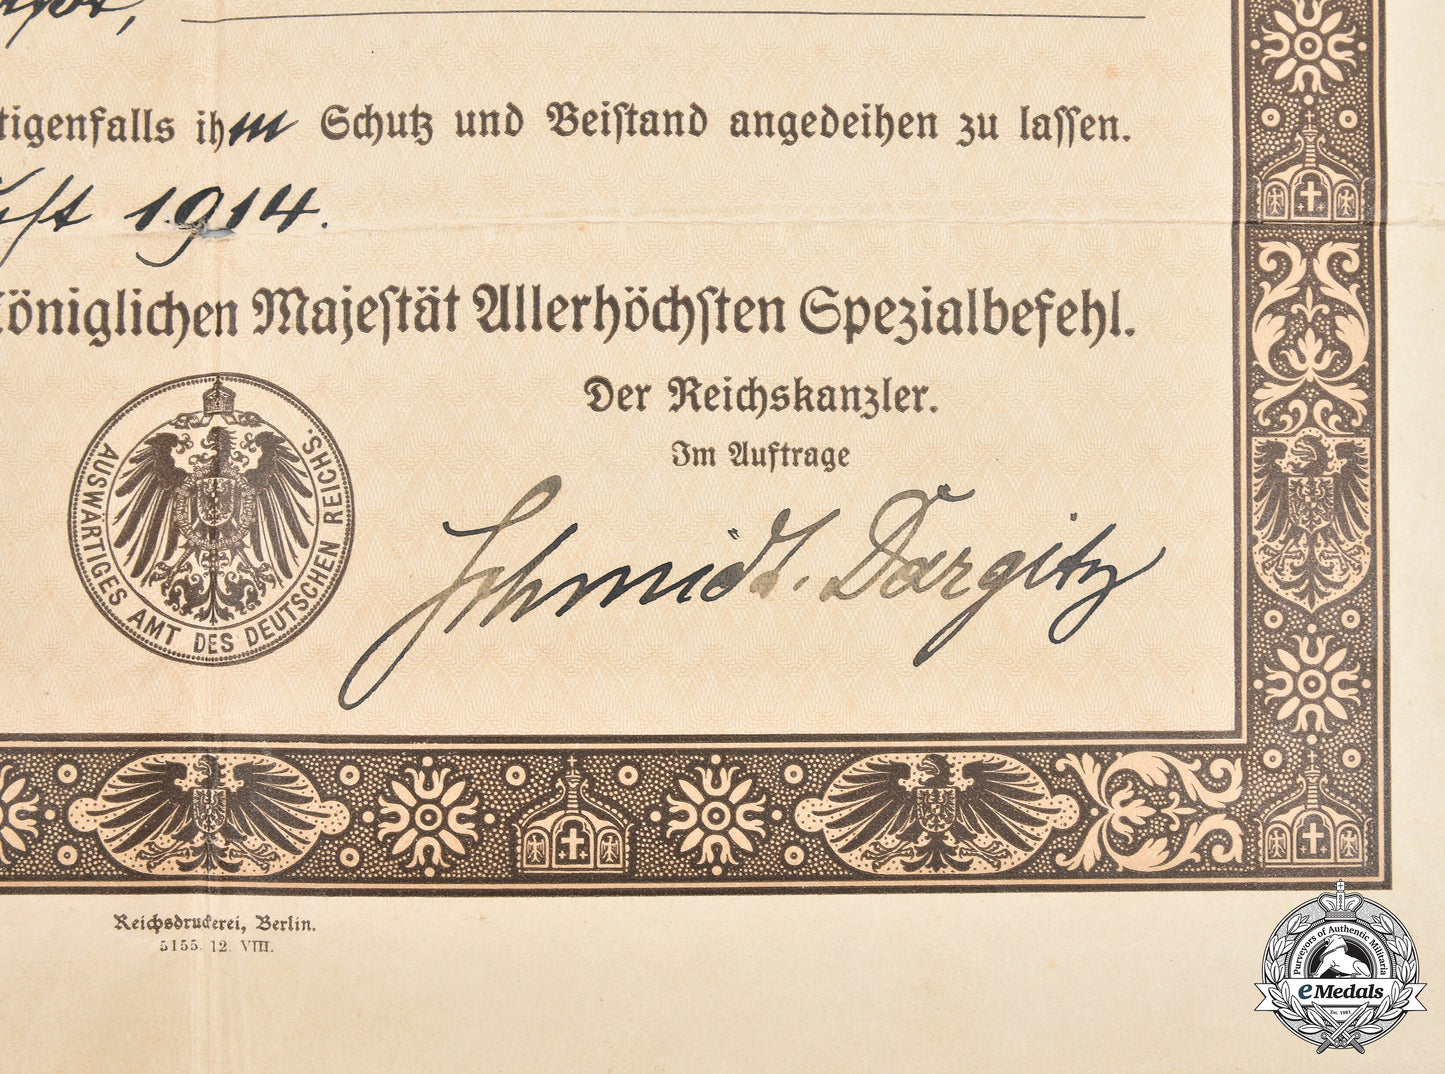 tigenfalls ihm Schutz und Beistand angedeihen zu lassen.
1914.
Königlichen Majestät Allerhöchsten Spezialbefehl.
Der Reichskanzler.
Im Auftrage
Schmidt. Dargitz
AUSWÄRTIGES AMT DES DEUTSCHEN REICHS.
Reichsdruckerei, Berlin.
5155. 12. VIII.
Purveyors of Authentic Militaria
eMedals
Est. 1981